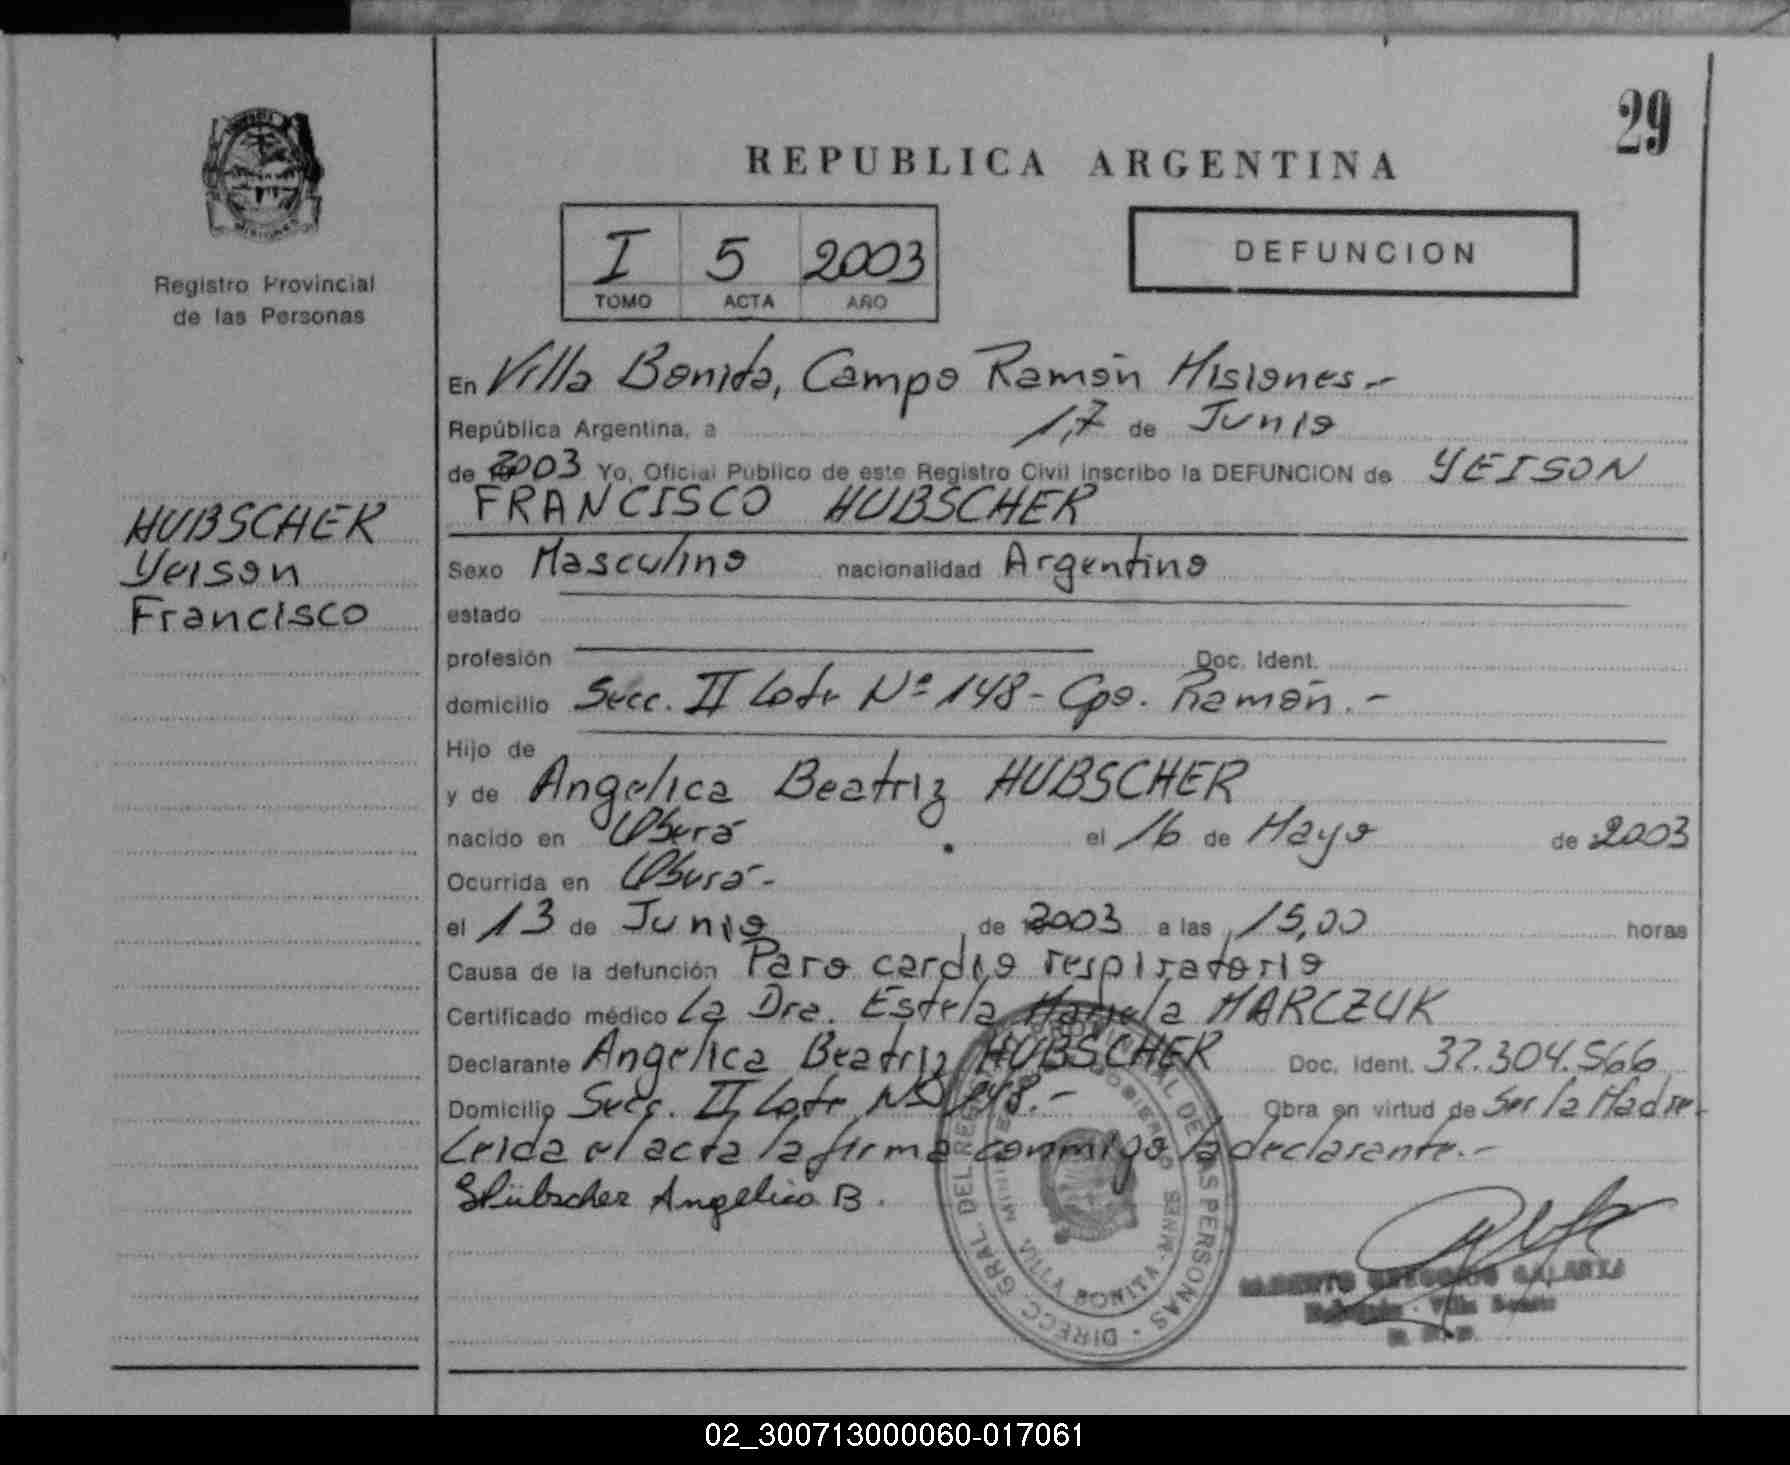 29
REPUBLICA ARGENTINA
MISIONES
Registro Provincial
de las Personas
I 5 2003
TOMO ACTA AÑO
DEFUNCION
En Villa Bonita, Campo Ramón Misiones.-
República Argentina, a 17 de Junio
de 2003 Yo, Oficial Público de este Registro Civil inscribo la DEFUNCION de YEISON
FRANCISCO HUBSCHER
HUBSCHER
Yeison
Francisco
Sexo Masculino nacionalidad Argentino
estado
profesión Doc. Ident.
domicilio Secc. II Lote Nº 148 - Cpo. Ramón.-
Hijo de
y de Angelica Beatriz HUBSCHER
nacido en Oberá el 16 de Mayo de 2003
Ocurrida en Oberá-
el 13 de Junio de 2003 a las 15,00 horas
Causa de la defunción Paro cardio respiratorio
Certificado médico La Dra. Estela Mariela MARCZUK
Declarante Angelica Beatriz HUBSCHER Doc. Ident. 32.304.566
Domicilio Secc. II Lote Nº 148.- Obra en virtud de Ser la Madre.
Leida el acta la firma conmigo la declarante.-
Hübscher Angelica B.
DIRECC GRAL. DEL REG. PROVINCIAL DE LAS PERSONAS
VILLA BONITA - MNES
GALARZA
Villa Bonita
02_300713000060-017061